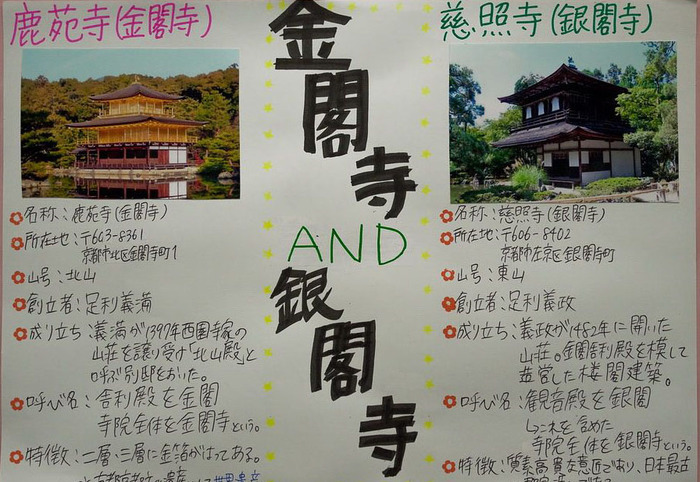 鹿苑寺(金閣寺)
名称:鹿苑寺(金閣寺)
所在地:〒603-8361
京都市北区金閣寺町1
山号:北山
創立者:足利義満
成り立ち:義満が1397年西園寺家の
山荘を譲り受け「北山殿」と
呼ぶ別邸をおいた。
呼び名:舎利殿を金閣
寺院全体を金閣寺という。
特徴:二層・三層に金箔がはってある。
金閣寺
AND
銀閣寺
慈照寺(銀閣寺)
名称:慈照寺(銀閣寺)
所在地:〒606-8402
京都市左京区銀閣寺町
山号:東山
創立者:足利義政
成り立ち:義政が1482年に開いた
山荘。金閣舎利殿を模して
造営した楼閣建築。
呼び名:観音殿を銀閣
これを含めた
寺院全体を銀閣寺という。
特徴:質素高貴な意匠であり、日本最古